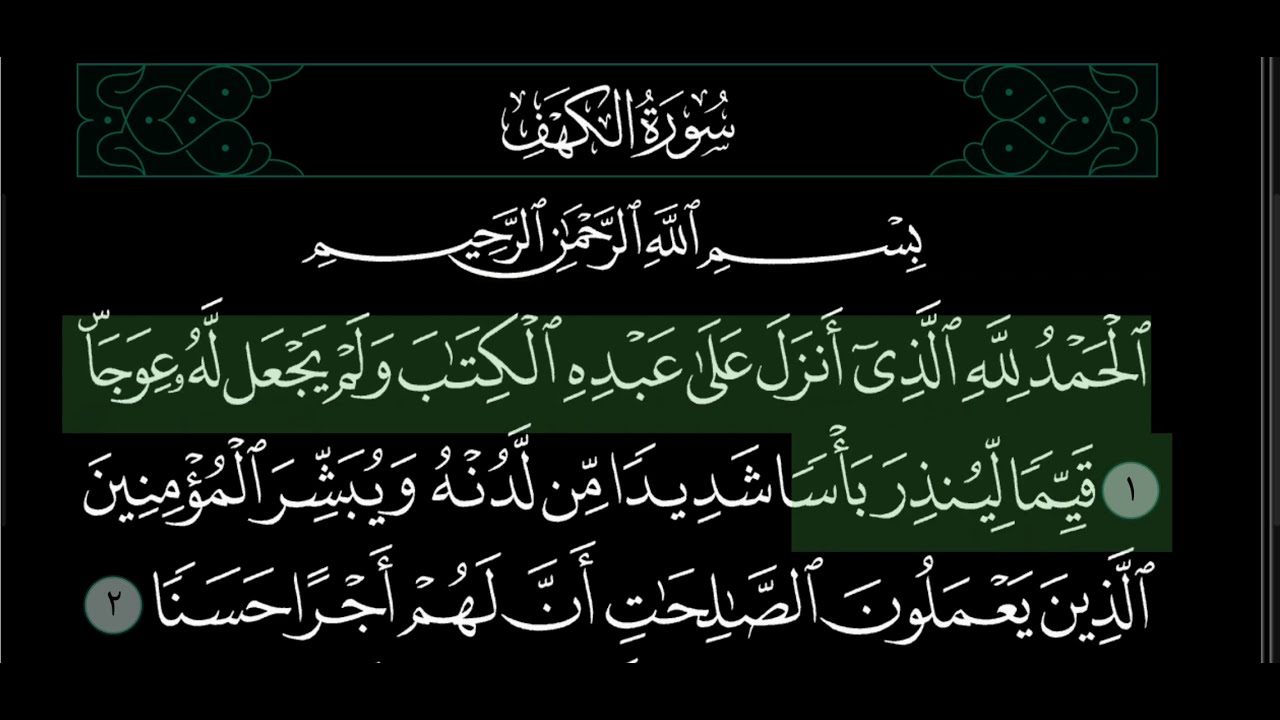 سُورَةُ الكَهْفِ
بِسْمِ ٱللَّهِ ٱلرَّحْمَٰنِ ٱلرَّحِيمِ
ٱلْحَمْدُ لِلَّهِ ٱلَّذِىٓ أَنزَلَ عَلَىٰ عَبْدِهِ ٱلْكِتَٰبَ وَلَمْ يَجْعَل لَّهُۥ عِوَجَاۜ
١ قَيِّمًا لِّيُنذِرَ بَأْسًا شَدِيدًا مِّن لَّدُنْهُ وَيُبَشِّرَ ٱلْمُؤْمِنِينَ
ٱلَّذِينَ يَعْمَلُونَ ٱلصَّٰلِحَٰتِ أَنَّ لَهُمْ أَجْرًا حَسَنًا ٢